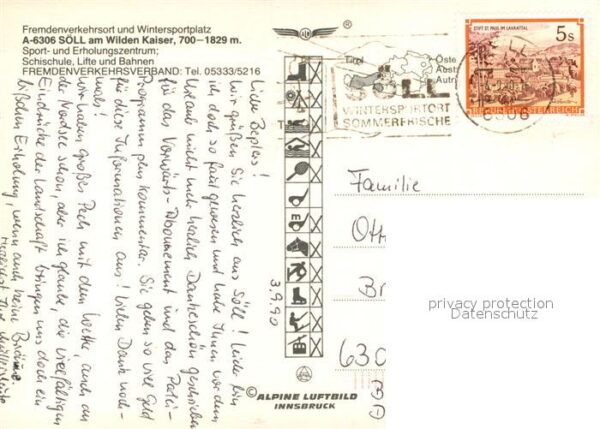 Fremdenverkehrsort und Wintersportplatz
A-6306 SÖLL am Wilden Kaiser, 700–1829 m.
Sport- und Erholungszentrum;
Schischule, Lifte und Bahnen
FREMDENVERKEHRSVERBAND: Tel. 05333/5216
Liebe
wir grüßen Sie herzlich aus Söll! Leider bin
ich doch so faul gewesen und habe Ihnen vor dem
Urlaub nicht mehr herzlich Dankeschön geschrieben
für das Vorwärts-Abonnement und das Partei-
programm plus Kommentar. Sie geben so viel Geld
für diese Informationen aus! Vielen Dank noch-
mals!
Wir haben großes Pech mit dem Wetter, auch an
der Nordsee schon, aber ich glaube, die vielfältigen
Eindrücke der Landschaft bringen uns doch ein
bißchen Erholung, wenn auch keine Bräune.
3.9.90
Tirol
Öste
Aust
Autri
SÖLL
WINTERSPORTORT
SOMMERFRISCHE
STIFT ST. PAUL IM LAVANTTAL
5s
REPUBLIK ÖSTERREICH
Familie
Ott
Br
630
privacy protection
Datenschutz
© ALPINE LUFTBILD
INNSBRUCK